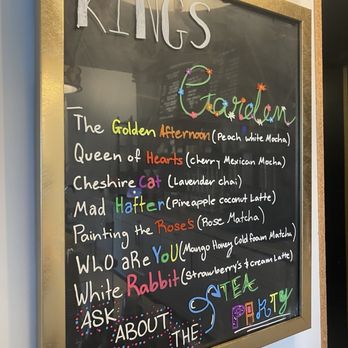 KINGS
Garden
The Golden Afternoon (Peach white Mocha)
Queen of Hearts (cherry Mexican Mocha)
Cheshire Cat (Lavender chai)
Mad Hatter (Pineapple coconut Latte)
Painting the Rose's (Rose Matcha)
WHO aRe YOU (Mango Honey Cold Foam Matcha)
White Rabbit (Strawberry's & cream Latte)
ASK ABOUT THE TEA PARTY